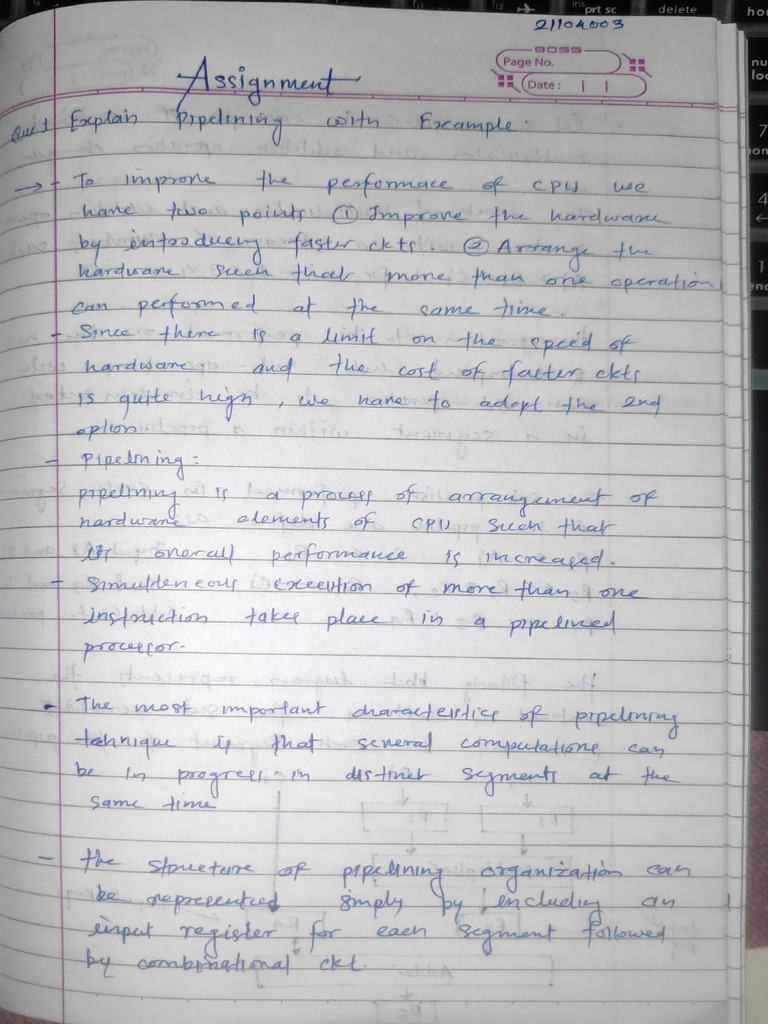 prt sc
delete
21104003
BOSS
Page No.
Date: | |
Assignment
Que 1 Explain Pipelining with Example.
→ - To improve the performace of CPU we
have two points ① Improve the hardware
by introducing faster ckts. ② Arrange the
hardware such that more than one operation
can performed at the same time.
- Since there is a limit on the speed of
hardware and the cost of faster ckts
is quite high, we have to adopt the 2nd
option
- Pipelining:
pipelining is a process of arrangement of
hardware elements of CPU such that
its overall performance is increased.
- Simulteneous execution of more than one
instruction takes place in a pipelined
processor.
- The most important characteristics of pipelining
tehnique is that several computations can
be in progress in distinct segments at the
same time
- the structure of pipelining organization can
be represented simply by including an
input register for each segment followed
by combinational ckt.